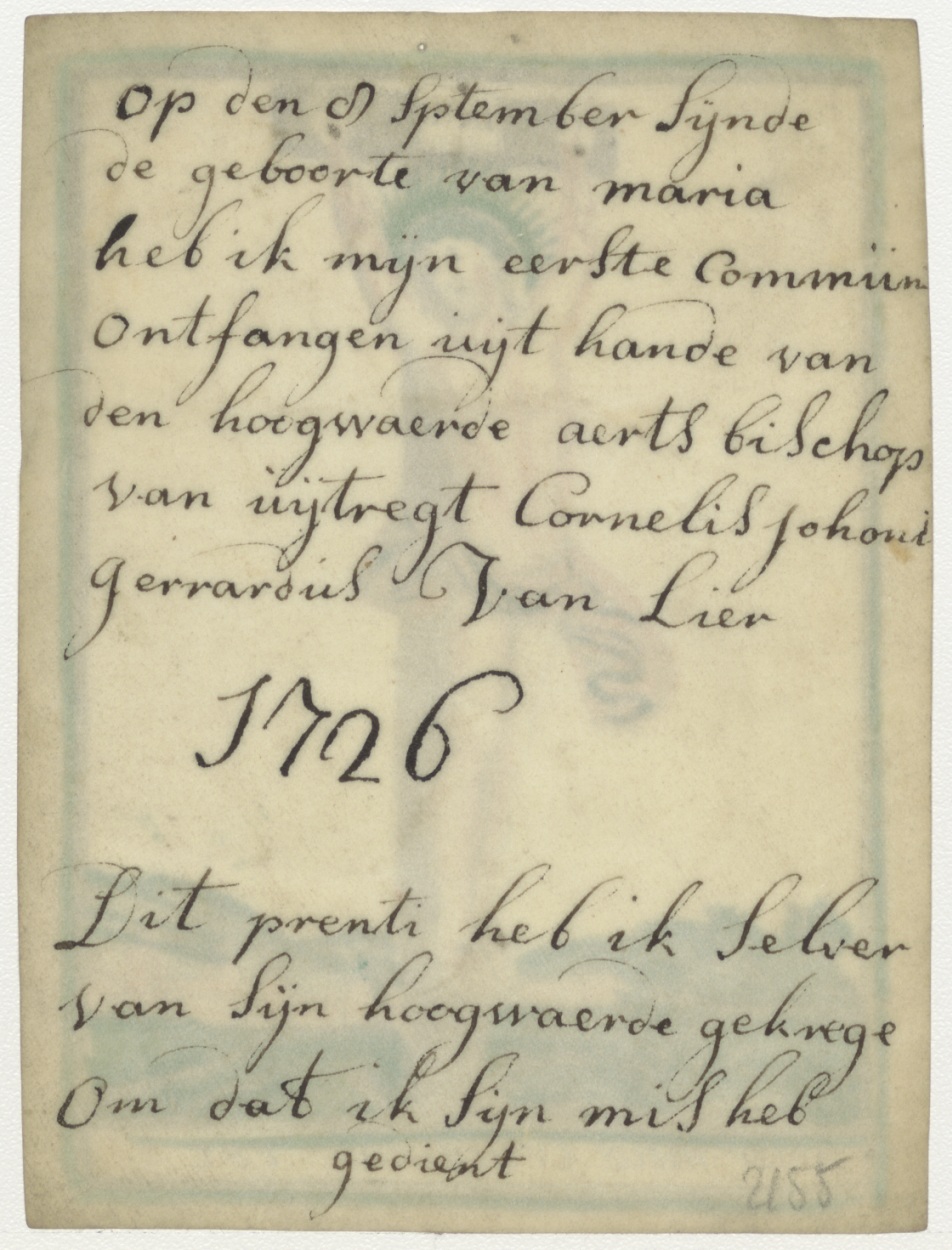 Op den 8 Sptember Sijnde
de geboorte van maria
heb ik mijn eerste Commiin
Ontfangen uijt hande van
den hoogwaerde aerts bischop
van uijtregt Cornelis Johoni
Gerrardus Van Lier
1726
Dit prenti heb ik Selver
van Sijn hoogwaerde gekrege
Om dat ik Sijn mis heb
gedient
2155